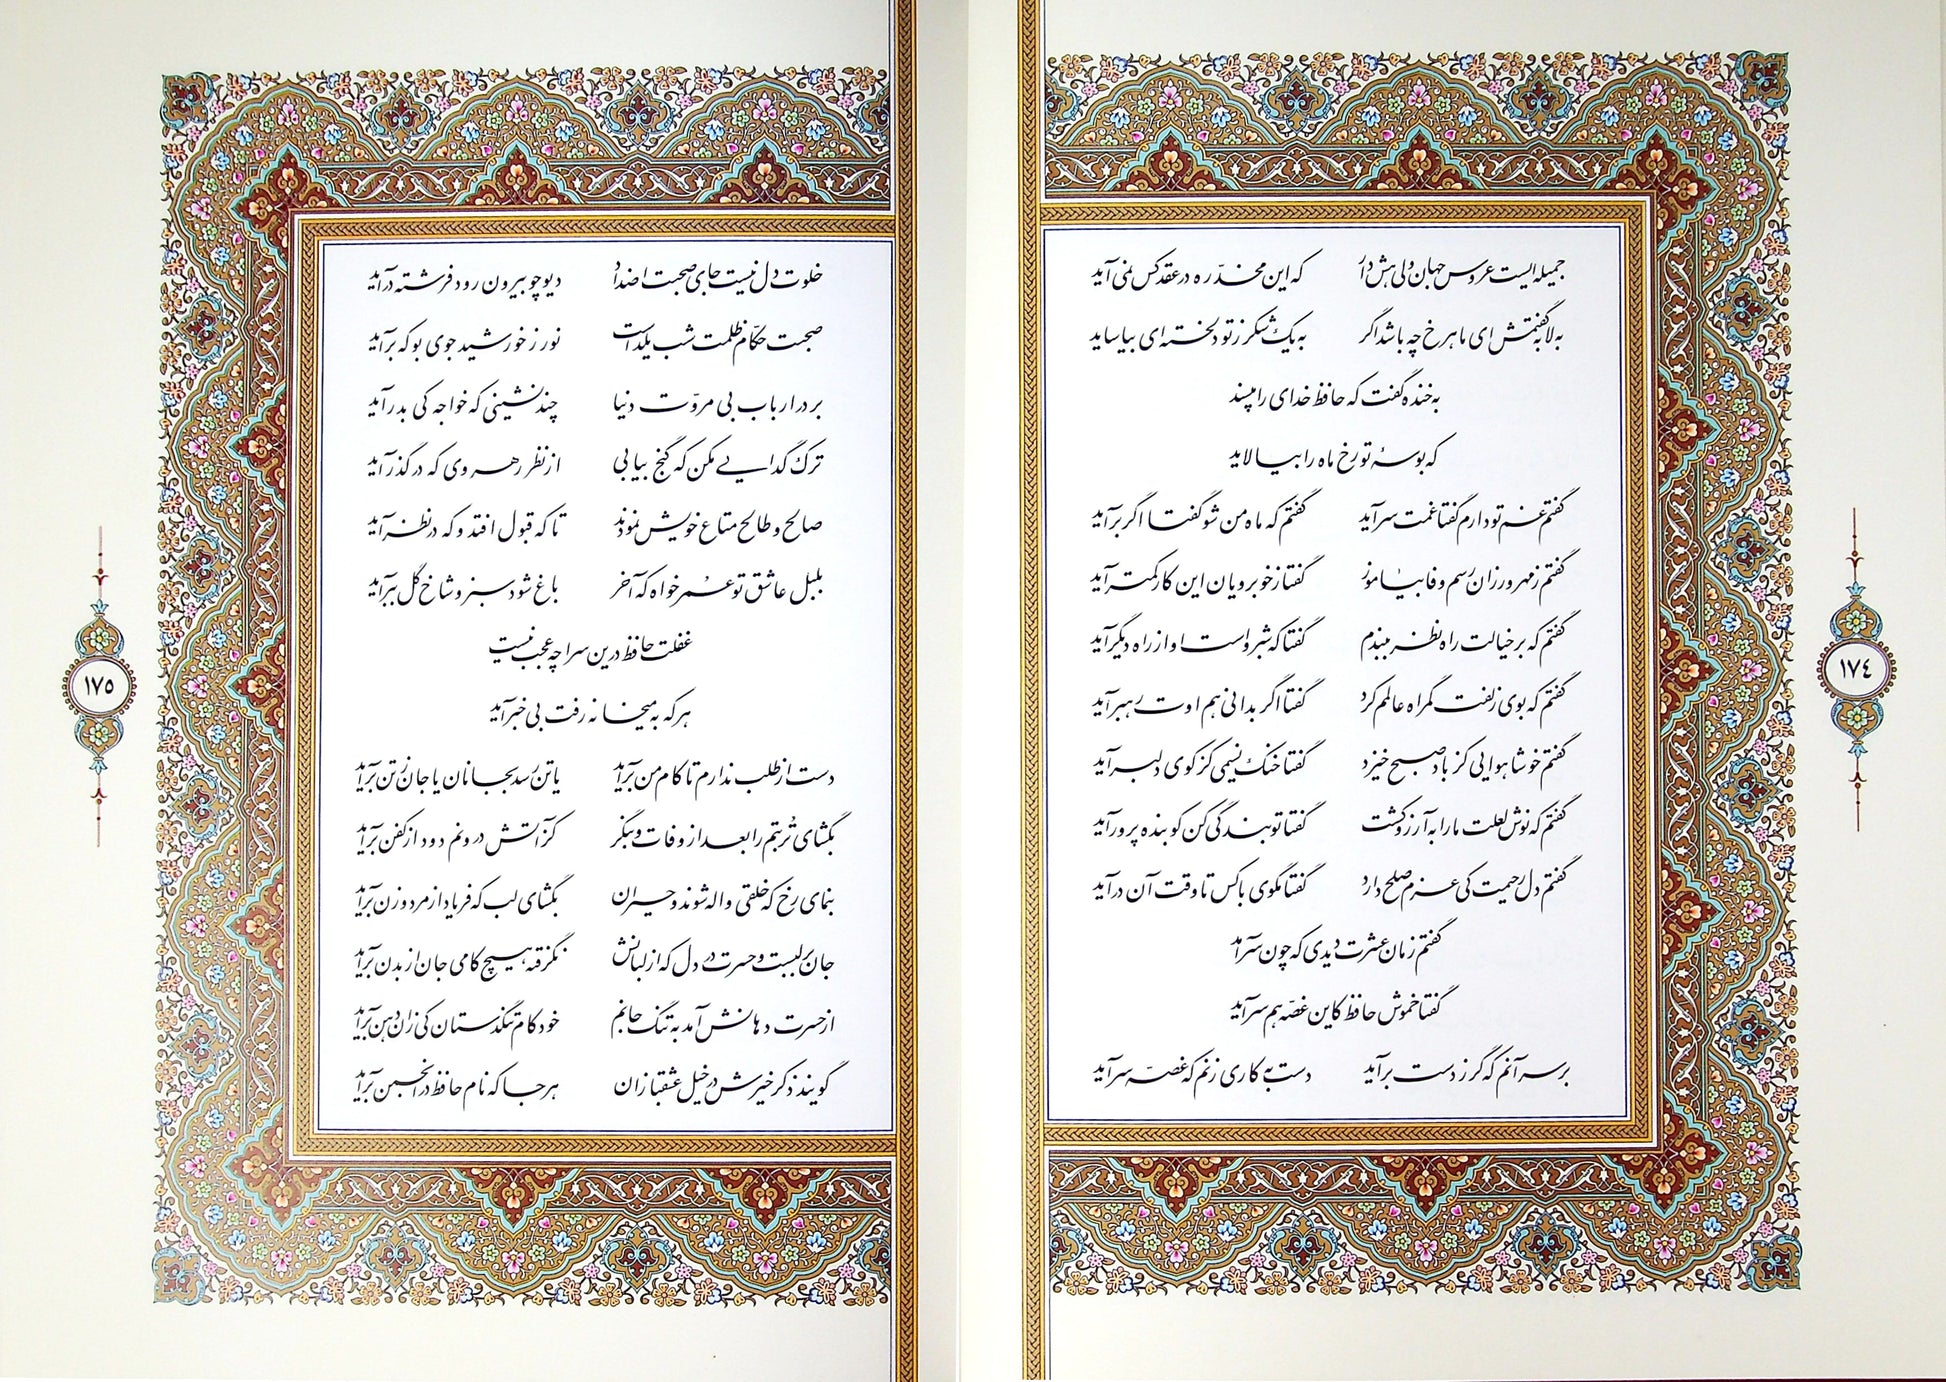 جمیله‌ایست عروس جهان ولی هش دار    که این مخدّره در عقد کس نمی آید
به لابه گفتمش ای ماهرخ چه باشد اگر    به یک شکر ز تو دلخسته‌ای بیاساید
به خنده گفت که حافظ خدای را مپسند
که بوسهٔ تو رخ ماه را بیالاید
گفتم غم تو دارم گفتا غمت سرآید    گفتم که ماه من شو گفتا اگر برآید
گفتم ز مهرورزان رسم وفا بیاموز    گفتا ز خوبرویان این کار کمتر آید
گفتم که بر خیالت راه نظر ببندم    گفتا که شبرواست او از راه دیگر آید
گفتم که بوی زلفت گمراه عالمم کرد    گفتا اگر بدانی هم اوت رهبر آید
گفتم خوشا هوایی کز باد صبح خیزد    گفتا خنک نسیمی کز کوی دلبر آید
گفتم که نوش لعلت ما را به آرزو کشت    گفتا تو بندگی کن کو بنده پرور آید
گفتم دل رحیمت کی عزم صلح دارد    گفتا مگوی با کس تا وقت آن درآید
گفتم زمان عشرت دیدی که چون سرآمد
گفتا خموش حافظ کاین غصّه هم سرآید
بر سر آنم که گر ز دست برآید    دست به کاری زنم که غصّه سرآید
١٧٤
خلوت دل نیست جای صحبت اضداد    دیو چو بیرون رود فرشته درآید
صحبت حکّام ظلمت شب یلداست    نور ز خورشید جوی بو که برآید
بر در ارباب بی مروّت دنیا    چند نشینی که خواجه کی بدرآید
ترک گدایی مکن که گنج بیابی    از نظر رهروی که در گذر آید
صالح و طالح متاع خویش نمودند    تا که قبول افتد و که در نظر آید
بلبل عاشق تو عمر خواه که آخر    باغ شود سبز و شاخ گل ببر آید
غفلت حافظ درین سراچه عجب نیست
هر که به میخانه رفت بی خبر آید
دست از طلب ندارم تا کام من برآید    یا تن رسد بجانان یا جان ز تن برآید
بگشای تُربتم را بعد از وفات و بنگر    کز آتش درونم دود از کفن برآید
بنمای رخ که خلقی واله شوند و حیران    بگشای لب که فریاد از مرد و زن برآید
جان بر لبست و حسرت در دل که از لبانش    نگرفته هیچ کامی جان از بدن برآید
از حسرت دهانش آمد به تنگ جانم    خود کام تنگدستان کی زان دهن برآید
گویند ذکر خیرش در خیل عشقبازان    هر جا که نام حافظ در انجمن برآید
١٧٥